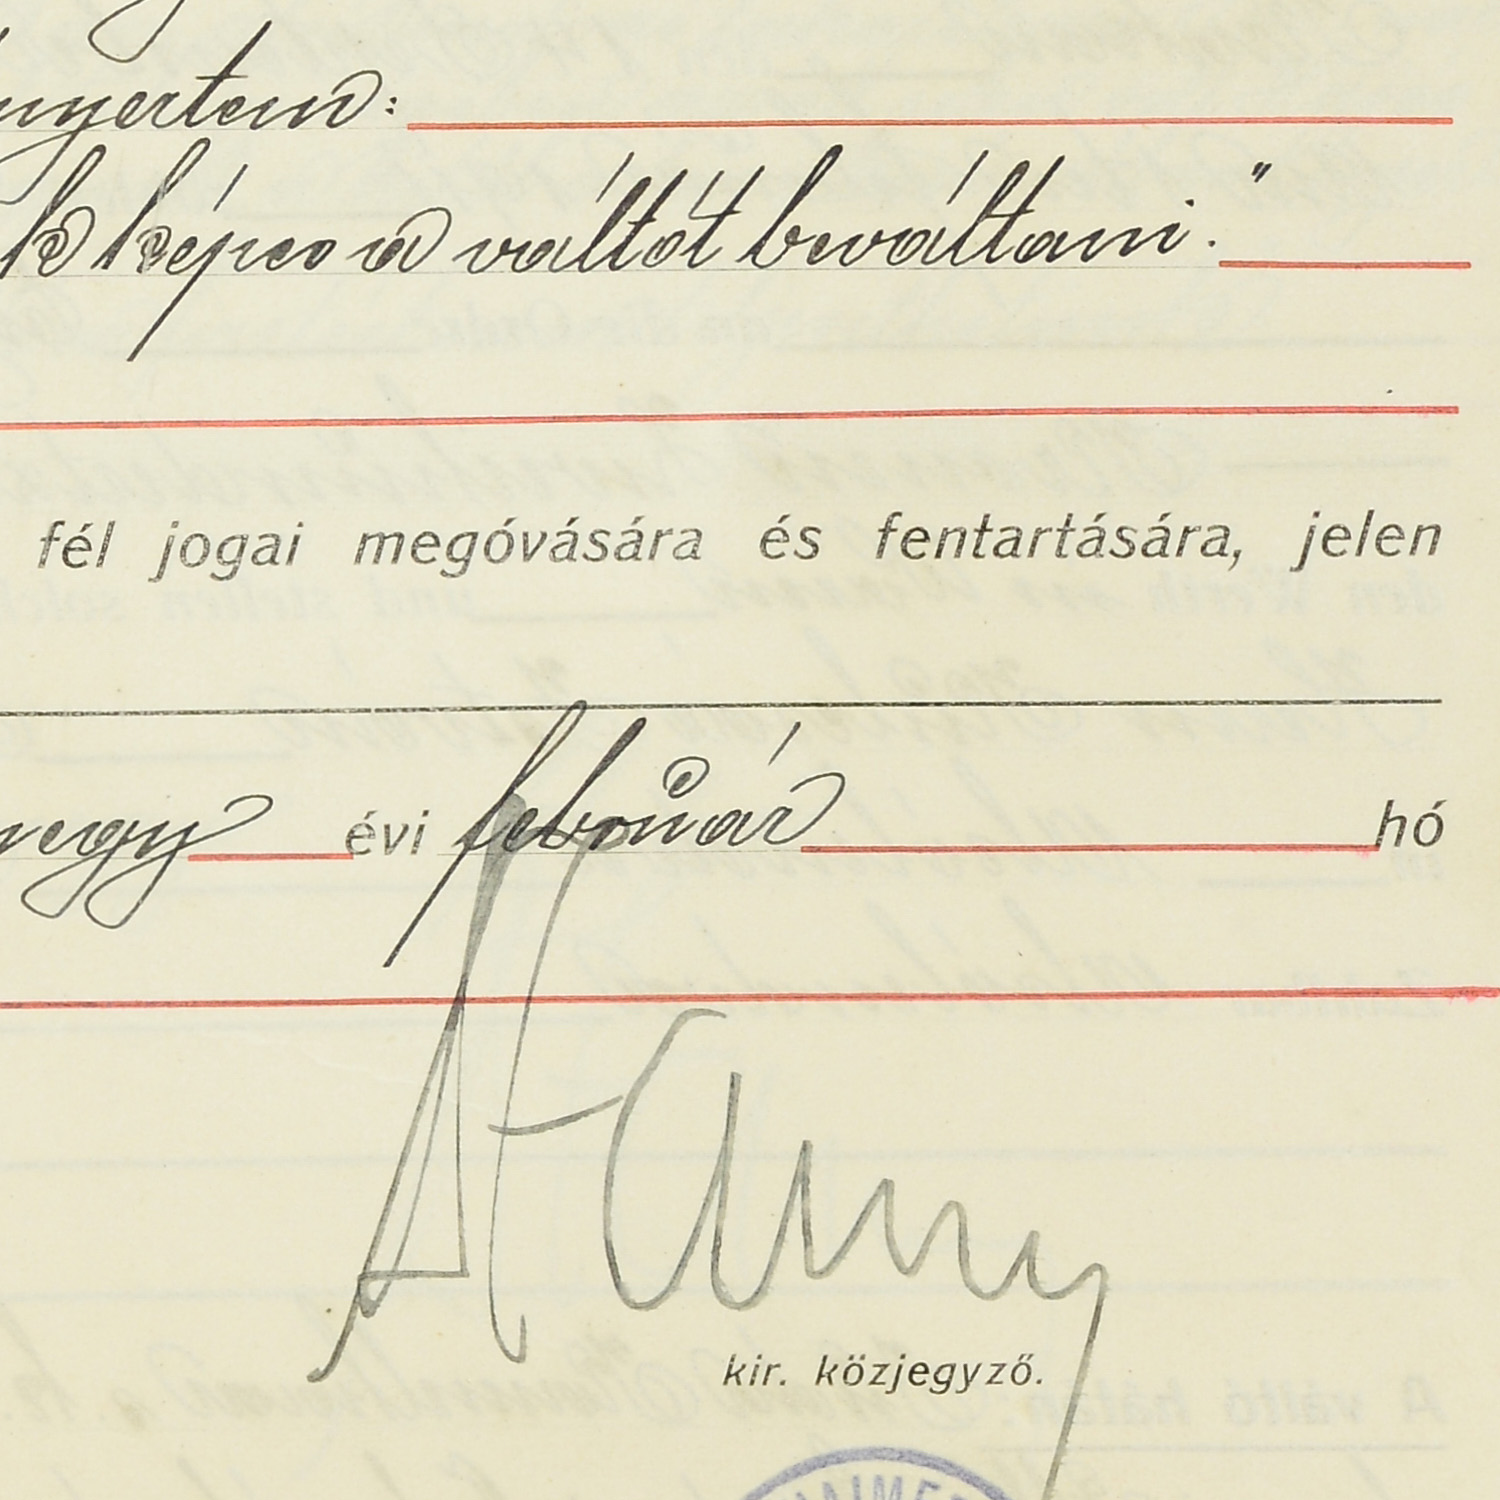 nyertem:
k képes a váltót beváltani."
fél jogai megóvására és fentartására, jelen
négy évi február hó
kir. közjegyző.